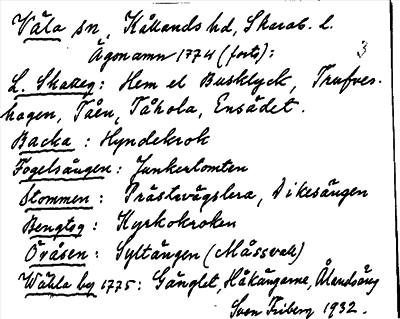 Väla sn, Kållands hd, Skarab. l.
Ägonamn 1774 (forts): 3
L. Skaleg: Hem el Busklyck, Trufves-
hagen, Tåen, Tåhola, Ensådet.
Backa: Hyndekrok
Fogelsången: Junkertomten
Stommen: Prästevägslera, Dikesängen
Bengtsg: Kyrkokroken
Öråsen: Syltängen (Måssvall)
Wähla by 1775: Gänglet, Håkängarne, Ålandsäng
Sven Friberg 1932.